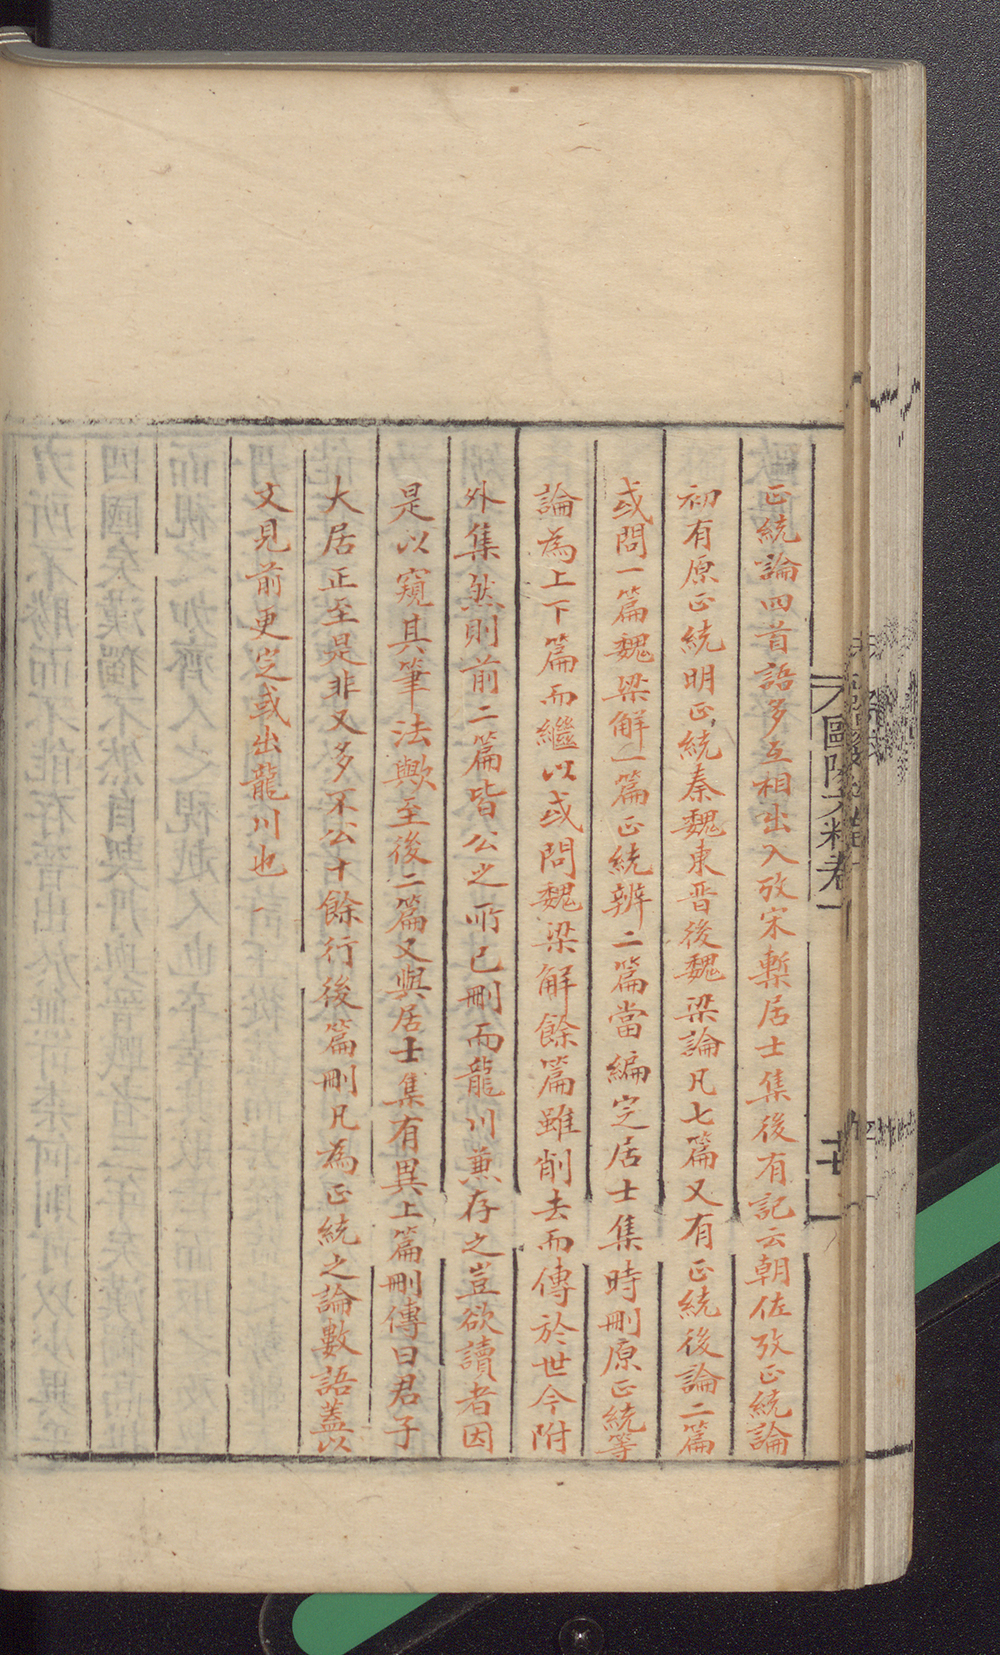 正統論四首語多互相出入攷宋槧居士集後有記云朝佐攷正統論
初有原正統明正統秦魏東晉後魏梁論凡七篇又有正統後論二篇
或問一篇魏梁解一篇正統辨二篇當編定居士集時刪原正統等
論為上下篇而繼以或問魏梁解餘篇雖削去而傳於世今附
外集然則前二篇皆公之所已刪而龍川兼存之豈欲讀者因
是以窺其筆法歟至後二篇又與居士集有異上篇刪傳曰君子
大居正至是非又多不公十餘行後篇刪凡為正統之論數語蓋以
文見前更定或出龍川也
歐陽文粹卷